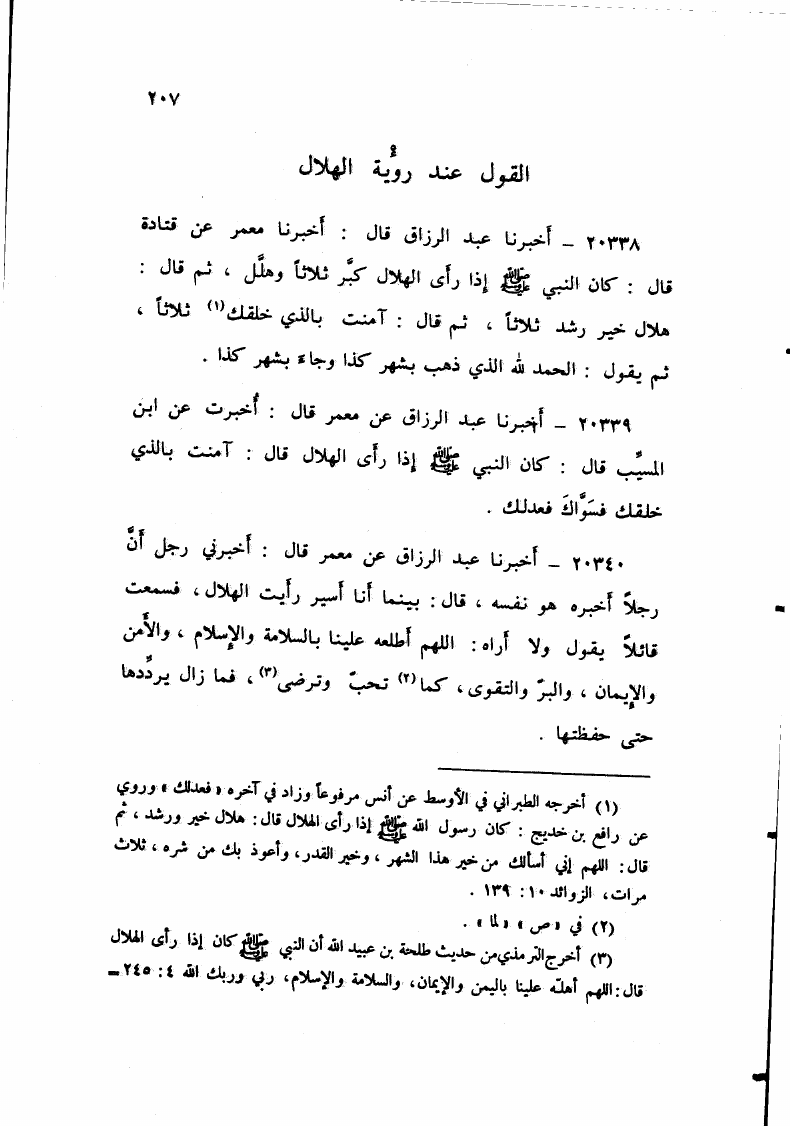 ٢٠٧
القول عند رؤية الهلال
٢٠٣٣٨ – أخبرنا عبد الرزاق قال : أخبرنا معمر عن قتادة
قال : كان النبي ﷺ إذا رأى الهلال كبَّر ثلاثاً وهلَّل ، ثم قال :
هلال خير رشد ثلاثاً ، ثم قال : آمنت بالذي خلقك (١) ثلاثاً ،
ثم يقول : الحمد لله الذي ذهب بشهر كذا وجاء بشهر كذا .
٢٠٣٣٩ – أخبرنا عبد الرزاق عن معمر قال : أُخبرت عن ابن
المسيِّب قال : كان النبي ﷺ إذا رأى الهلال قال : آمنت بالذي
خلقك فسَوَّاكَ فعدلك .
٢٠٣٤٠ – أخبرنا عبد الرزاق عن معمر قال : أخبرني رجل أنَّ
رجلاً أخبره هو نفسه ، قال : بينما أنا أسير رأيت الهلال ، فسمعت
قائلاً يقول ولا أراه : اللهم أطلعه علينا بالسلامة والإسلام ، والأمن
والإيمان ، والبرّ والتقوى ، كما (٢) تحبّ وترضى (٣) ، فما زال يردِّدها
حتى حفظتها .
(١) أخرجه الطبراني في الأوسط عن أنس مرفوعاً وزاد في آخره « فعدلك » وروي
عن رافع بن خديج : كان رسول الله ﷺ إذا رأى الهلال قال : هلال خير ورشد ، ثم
قال : اللهم إني أسألك من خير هذا الشهر ، وخير القدر ، وأعوذ بك من شره ، ثلاث
مرات ، الزوائد ١٠ : ١٣٩ .
(٢) في « ص » « لما » .
(٣) أخرج الترمذي من حديث طلحة بن عبيد الله أن النبي ﷺ كان إذا رأى الهلال
قال : اللهم أهلّه علينا باليمن والإيمان ، والسلامة والإسلام ، ربي وربك الله ٤ : ٢٤٥ –